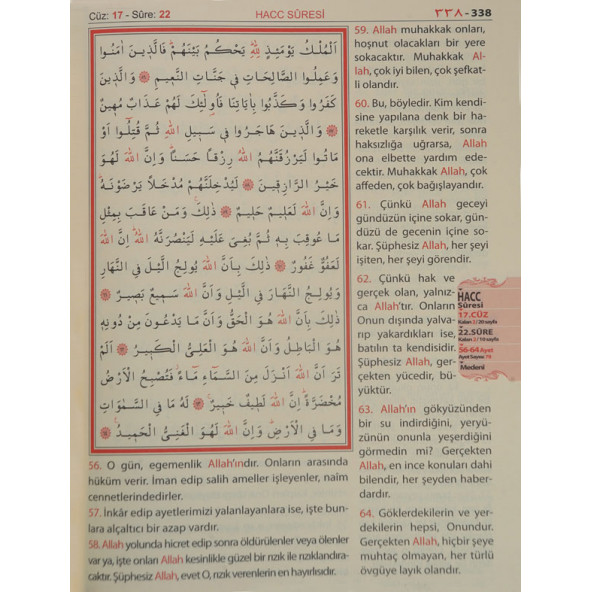 Cüz: 17 - Sûre: 22
HACC SÛRESİ
٣٣٨ - 338
اَلْمُلْكُ يَوْمَئِذٍ لِلّٰهِۜ يَحْكُمُ بَيْنَهُمْۜ فَالَّذ۪ينَ اٰمَنُوا
وَعَمِلُوا الصَّالِحَاتِ ف۪ي جَنَّاتِ النَّع۪يمِ ۞ وَالَّذ۪ينَ
كَفَرُوا وَكَذَّبُوا بِاٰيَاتِنَا فَاُو۬لٰٓئِكَ لَهُمْ عَذَابٌ مُه۪ينٌ
۞ وَالَّذ۪ينَ هَاجَرُوا ف۪ي سَب۪يلِ اللّٰهِ ثُمَّ قُتِلُٓوا اَوْ
مَاتُوا لَيَرْزُقَنَّهُمُ اللّٰهُ رِزْقًا حَسَنًاۜ وَاِنَّ اللّٰهَ لَهُوَ
خَيْرُ الرَّازِق۪ينَ ۞ لَيُدْخِلَنَّهُمْ مُدْخَلًا يَرْضَوْنَهُۜ
وَاِنَّ اللّٰهَ لَعَل۪يمٌ حَل۪يمٌ ۞ ذٰلِكَۚ وَمَنْ عَاقَبَ بِمِثْلِ
مَا عُوقِبَ بِه۪ ثُمَّ بُغِيَ عَلَيْهِ لَيَنْصُرَنَّهُ اللّٰهُۜ اِنَّ اللّٰهَ
لَعَفُوٌّ غَفُورٌ ۞ ذٰلِكَ بِاَنَّ اللّٰهَ يُولِجُ الَّيْلَ فِي النَّهَارِ
وَيُولِجُ النَّهَارَ فِي الَّيْلِ وَاَنَّ اللّٰهَ سَم۪يعٌ بَص۪يرٌ ۞
ذٰلِكَ بِاَنَّ اللّٰهَ هُوَ الْحَقُّ وَاَنَّ مَا يَدْعُونَ مِنْ دُونِه۪
هُوَ الْبَاطِلُ وَاَنَّ اللّٰهَ هُوَ الْعَلِيُّ الْكَب۪يرُ ۞ اَلَمْ
تَرَ اَنَّ اللّٰهَ اَنْزَلَ مِنَ السَّمَٓاءِ مَٓاءًۘ فَتُصْبِحُ الْاَرْضُ
مُخْضَرَّةًۜ اِنَّ اللّٰهَ لَط۪يفٌ خَب۪يرٌ ۞ لَهُ مَا فِي السَّمٰوَاتِ
وَمَا فِي الْاَرْضِۜ وَاِنَّ اللّٰهَ لَهُوَ الْغَنِيُّ الْحَم۪يدُ ۞
56. O gün, egemenlik Allah'ındır. Onların arasında
hüküm verir. İman edip salih ameller işleyenler, naîm
cennetlerindedirler.
57. İnkâr edip ayetlerimizi yalanlayanlara ise, işte bun-
lara alçaltıcı bir azap vardır.
58. Allah yolunda hicret edip sonra öldürülenler veya ölenler
var ya, işte onları Allah kesinlikle güzel bir rızık ile rızıklandıra-
caktır. Şüphesiz Allah, evet O, rızık verenlerin en hayırlısıdır.
59. Allah muhakkak onları,
hoşnut olacakları bir yere
sokacaktır. Muhakkak Al-
lah, çok iyi bilen, çok şefkat-
li olandır.
60. Bu, böyledir. Kim kendi-
sine yapılana denk bir ha-
reketle karşılık verir, sonra
haksızlığa uğrarsa, Allah
ona elbette yardım ede-
cektir. Muhakkak Allah, çok
affeden, çok bağışlayandır.
61. Çünkü Allah geceyi
gündüzün içine sokar, gün-
düzü de gecenin içine so-
kar. Şüphesiz Allah, her şeyi
işiten, her şeyi görendir.
62. Çünkü hak ve
gerçek olan, yalnız-
ca Allah'tır. Onların
Onun dışında yalva-
rıp yakardıkları ise,
batılın ta kendisidir.
Şüphesiz Allah, ger-
çekten yücedir, bü-
yüktür.
63. Allah'ın gökyüzünden
bir su indirdiğini, yeryü-
zünün onunla yeşerdiğini
görmedin mi? Gerçekten
Allah, en ince konuları dahi
bilendir, her şeyden haber-
dardır.
64. Göklerdekilerin ve yer-
dekilerin hepsi, Onundur.
Gerçekten Allah, hiçbir şeye
muhtaç olmayan, her türlü
övgüye layık olandır.
HACC
Sûresi
17.CÜZ
22.SÛRE
56-64 Ayet
Medenî